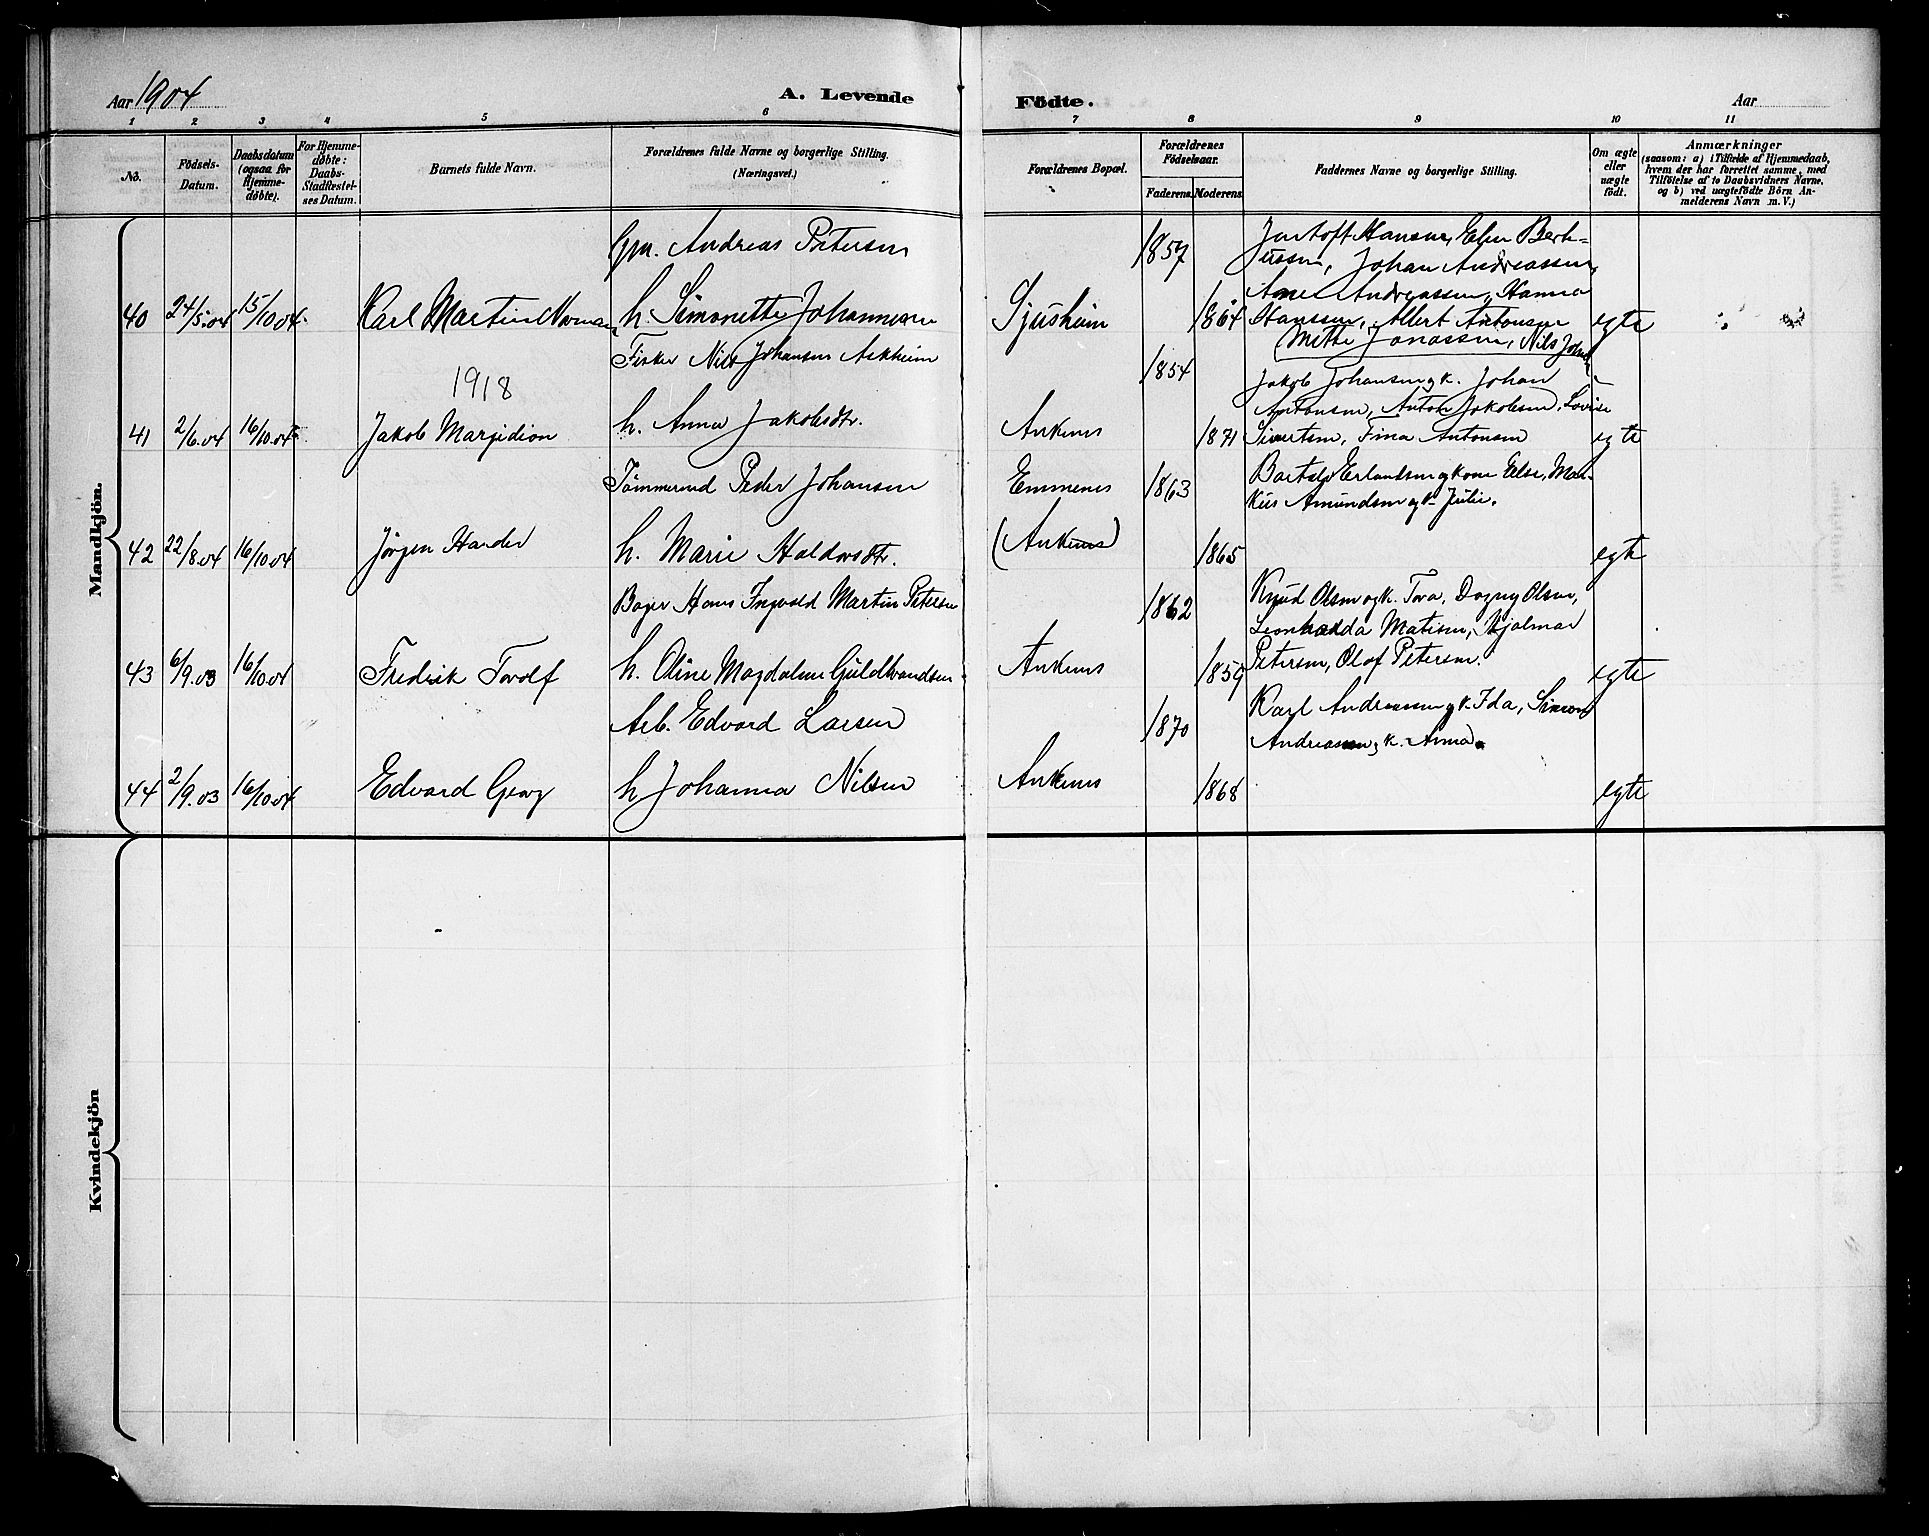 Aar 1904
A. Levende
Födte.
Aar
1 2 3 4 5 6 7 8 9 10 11
No.
Födsels-
Datum.
Daabsdatum
(ogsaa for
Hjemme-
døbte).
For Hjemme-
døbte:
Daabs-
Stadfæstel-
ses Datum.
Barnets fulde Navn.
Forældrenes fulde Navne og borgerlige Stilling.
(Næringsvei.)
Forældrenes Bopæl.
Forældrenes
Födselsaar.
Faderens. Moderens.
Faddernes Navne og borgerlige Stilling.
Om ægte
eller
uægte
født.
Anmærkninger
(saasom: a) i Tilfælde af Hjemmedaab,
hvem der har forrettet samme, med
Tilføielse af to Daabsvidners Navne,
og b) ved uægtefødte Børn An-
melderens Navn m. V.)
Mandkjön.
Gm. Andreas Petersen
1857
Hansen, Elen Berk-
Johan Andreassen,
Andreassen, Hanna
40 24/5.04 15/10.04. Karl Martin Norman h. Simonette Johannesen
Sjusheim 1864 Hanssen, Albert Antonsen egte
Mette Jonassen, Nils
Fisker Nils Johansen Ankheim
1854
1918
Jakob Johansen og k. Johan
Antonsen, Anton Jakobsen, Lovise
41 2/6.04 16/10.04 Jakob Margidion h. Anna Jakobsdtr.
Ankenes 1871 Sivertsen, Fina Antonsen egte
Tömmermd Peder Johansen
Emmenes 1863 Erlandsen og kone Else, Mar-
kus Amundsen og k. Julie.
42 22/8.04 16/10.04 Jörgen Harder h. Marie Haldorsdtr.
(Ankenes) 1865 egte
Bager Hans Ingvald Martin Petersen
1862 Knud Olsen og k. Tora, Dagny Olsen,
Leonharda Matisen, Hjalmar
43 6/9.03 16/10.04 Fredrik Torolf h. Oline Magdalene Guldbrandsen
Ankenes 1859 Petersen, Olaf Petersen. egte
Arb. Edvard Larsen
1870 Karl Andreassen og k. Ida, Simon
Andreassen og k. Anna.
44 2/9.03 16/10.04 Edvard Georg h. Johanna Nilsen
Ankenes 1868 egte
Kvindekjön